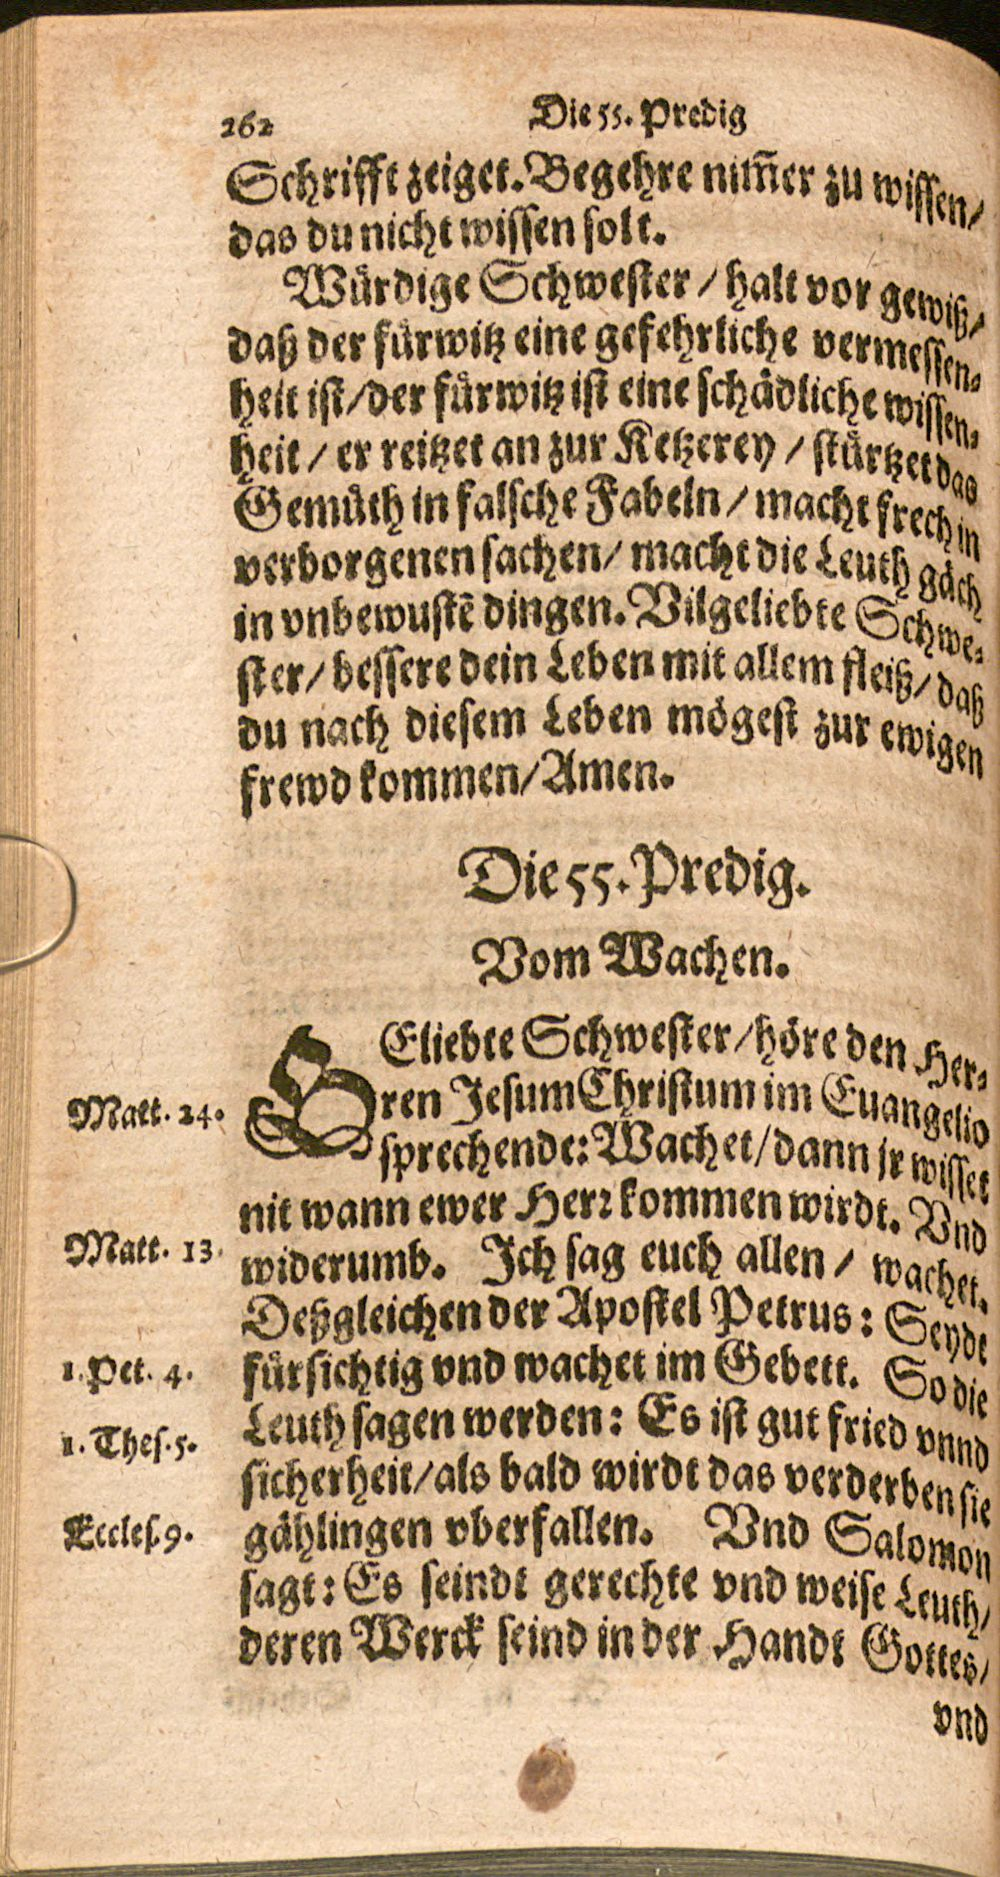 262 Die 55. Predig
Schrifft zeiget. Begehre nim̄er zu wissen/
das du nicht wissen solt.
Würdige Schwester / halt vor gewiß/
daß der fürwitz eine gefehrliche vermessen-
heit ist/der fürwitz ist eine schädliche wissen-
heit / er reitzet an zur Ketzerey / stürtzet das
Gemüth in falsche Fabeln / macht frech in
verborgenen sachen/ macht die Leuth gäch
in vnbewustē dingen. Vilgeliebte Schwe-
ster/ bessere dein Leben mit allem fleiß/ daß
du nach diesem Leben mögest zur ewigen
frewd kommen/Amen.
Die 55. Predig.
Vom Wachen.
GEliebte Schwester/höre den Her-
ren Jesum Christum im Euangelio
Matt. 24.
sprechende: Wachet/dann jr wisset
nit wann ewer Herr kommen wirdt. Vnd
Matt. 13.
widerumb. Ich sag euch allen / wachet.
Deßgleichen der Apostel Petrus: Seydt
1. Pet. 4.
fürsichtig vnd wachet im Gebett. So die
Leuth sagen werden: Es ist gut fried vnnd
1. Thes. 5.
sicherheit/als bald wirdt das verderben sie
Eccles. 9.
gählingen vberfallen. Vnd Salomon
sagt: Es seindt gerechte vnd weise Leuth/
deren Werck seind in der Handt Gottes/
vnd